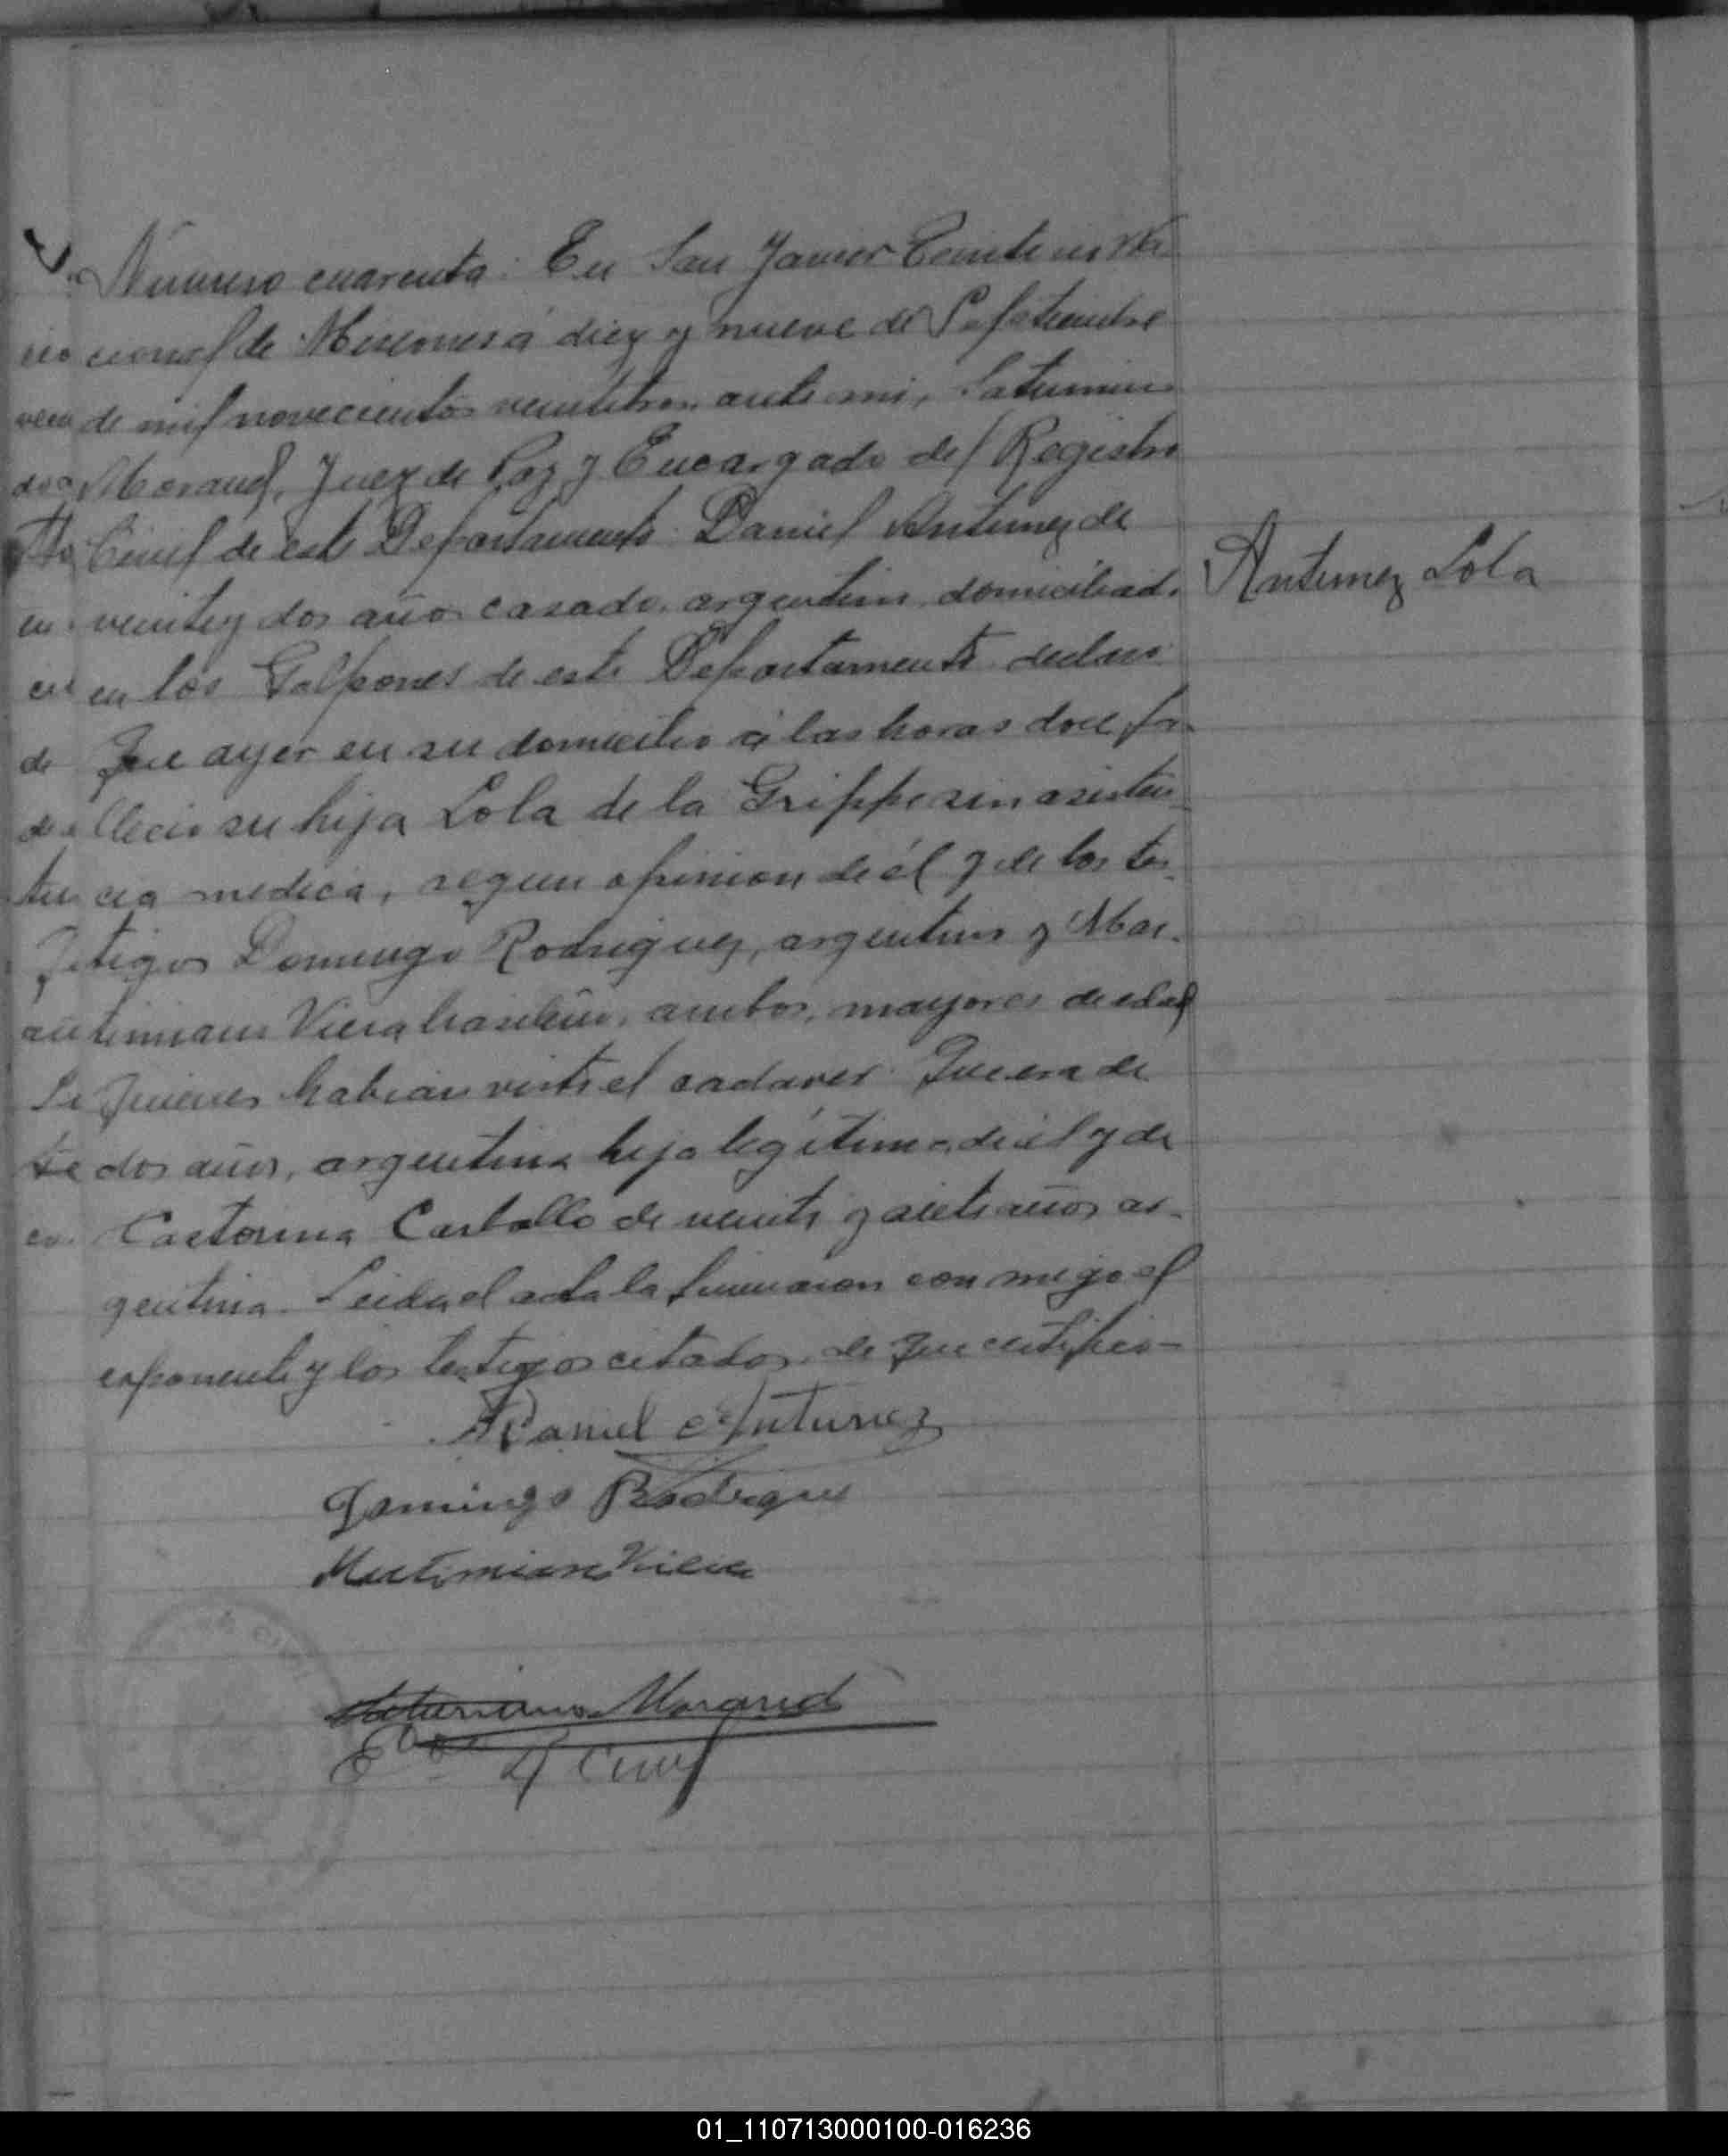 Número cuarenta: En San Javier Territorio Na
cional de Misiones á diez y nueve de Septiembre
de mil novecientos veintitres, ante mi, Saturnino
Morand, Juez de Paz y Encargado del Registro
Civil de este Departamento: Daniel Antunez de
veinte y dos años casado, argentino, domiciliado
en los Galpones de este Departamento declaró
Que ayer en su domicilio á las horas doce fa-
lleció su hija Lola de la Grippe sin asisten-
cia medica, segun opinion de él y de los tes-
tigos Domingo Rodriguez, argentino y
Viera brasilero, ambos, mayores de edad
quienes habian visto el cadaver. Que era de
dos años, argentina hija legítima de él y de
Castorina Carballo de veinte y siete años ar-
gentina. Leida el acta la firmaron con migo el
exponente y los testigos citados de que certifico-
Daniel Antunez
Domingo Rodrigues
Viera
Saturnino Morand
Antunez Lola
01_110713000100-016236